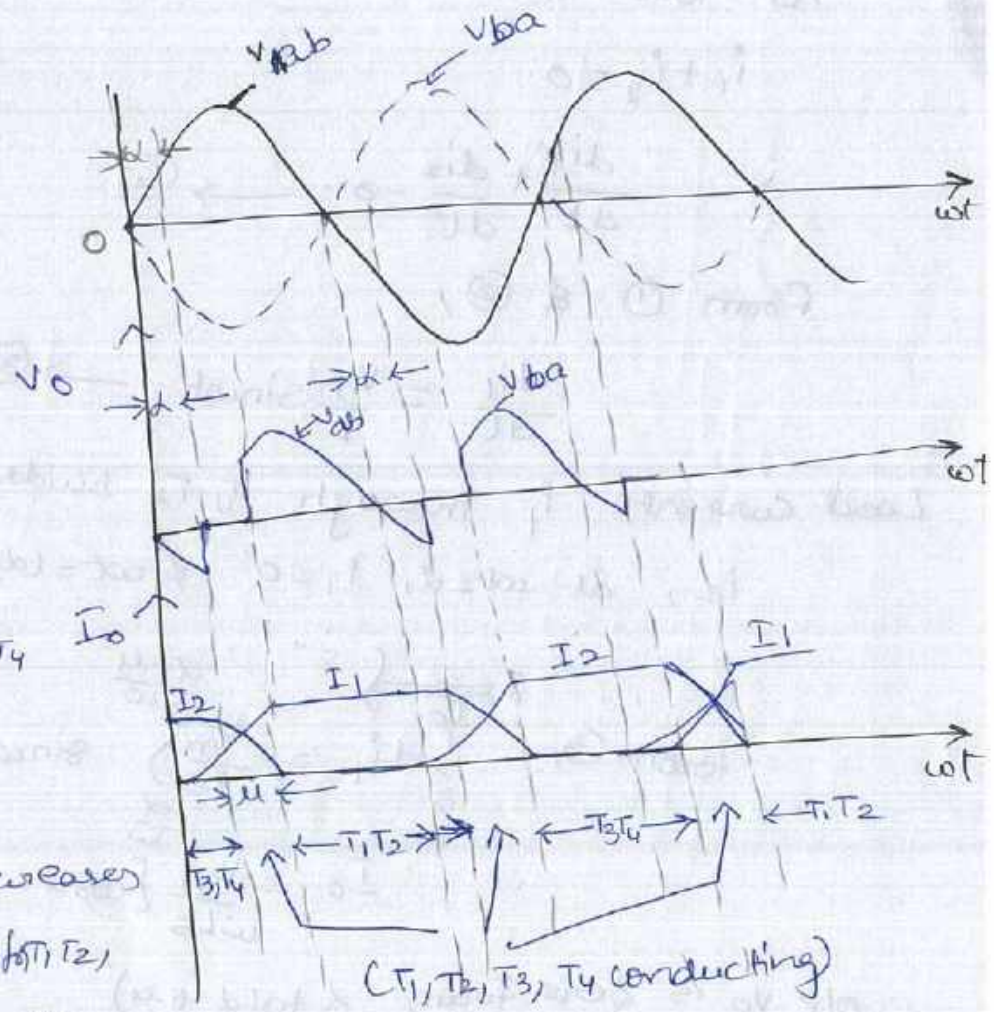 Vab
Vba
α
0
ωt
V0
α
α
Vab
Vba
ωt
I0
T4
I2
I1
I2
I1
ωt
μ
T1T2
T2T4
T1T2
T3,T4
creases
for T1T2,
(T1, T2, T3, T4 conducting)